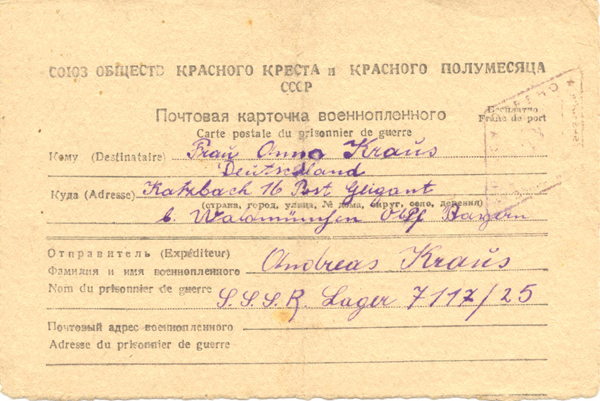 СОЮЗ ОБЩЕСТВ КРАСНОГО КРЕСТА и КРАСНОГО ПОЛУМЕСЯЦА
СССР
Почтовая карточка военнопленного
Бесплатно
Carte postale du prisonnier de guerre
Franc de port
Кому (Destinataire) Frau Anna Kraus
Deutschland
Куда (Adresse) Katzbach 16 Post Geigant
(страна, город, улица, № дома, округ, село, деревня)
b. Waldmünchen Obpf Bayern
Отправитель (Expéditeur)
Фамилия и имя военнопленного Andreas Kraus
Nom du prisonnier de guerre
S.S.S.R. Lager 7117/25
Почтовый адрес военнопленного
Adresse du prisonnier de guerre